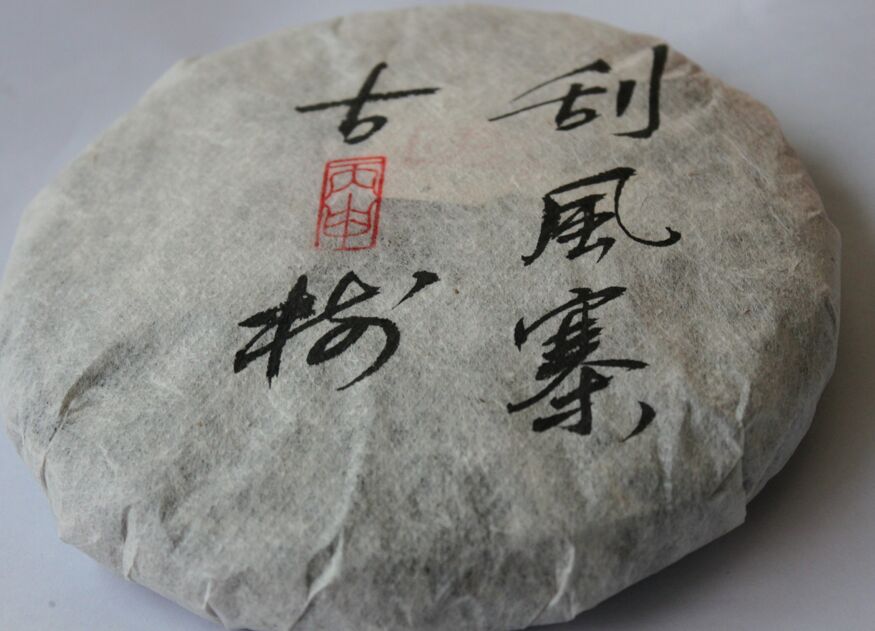 刮風寨
古樹
丙申